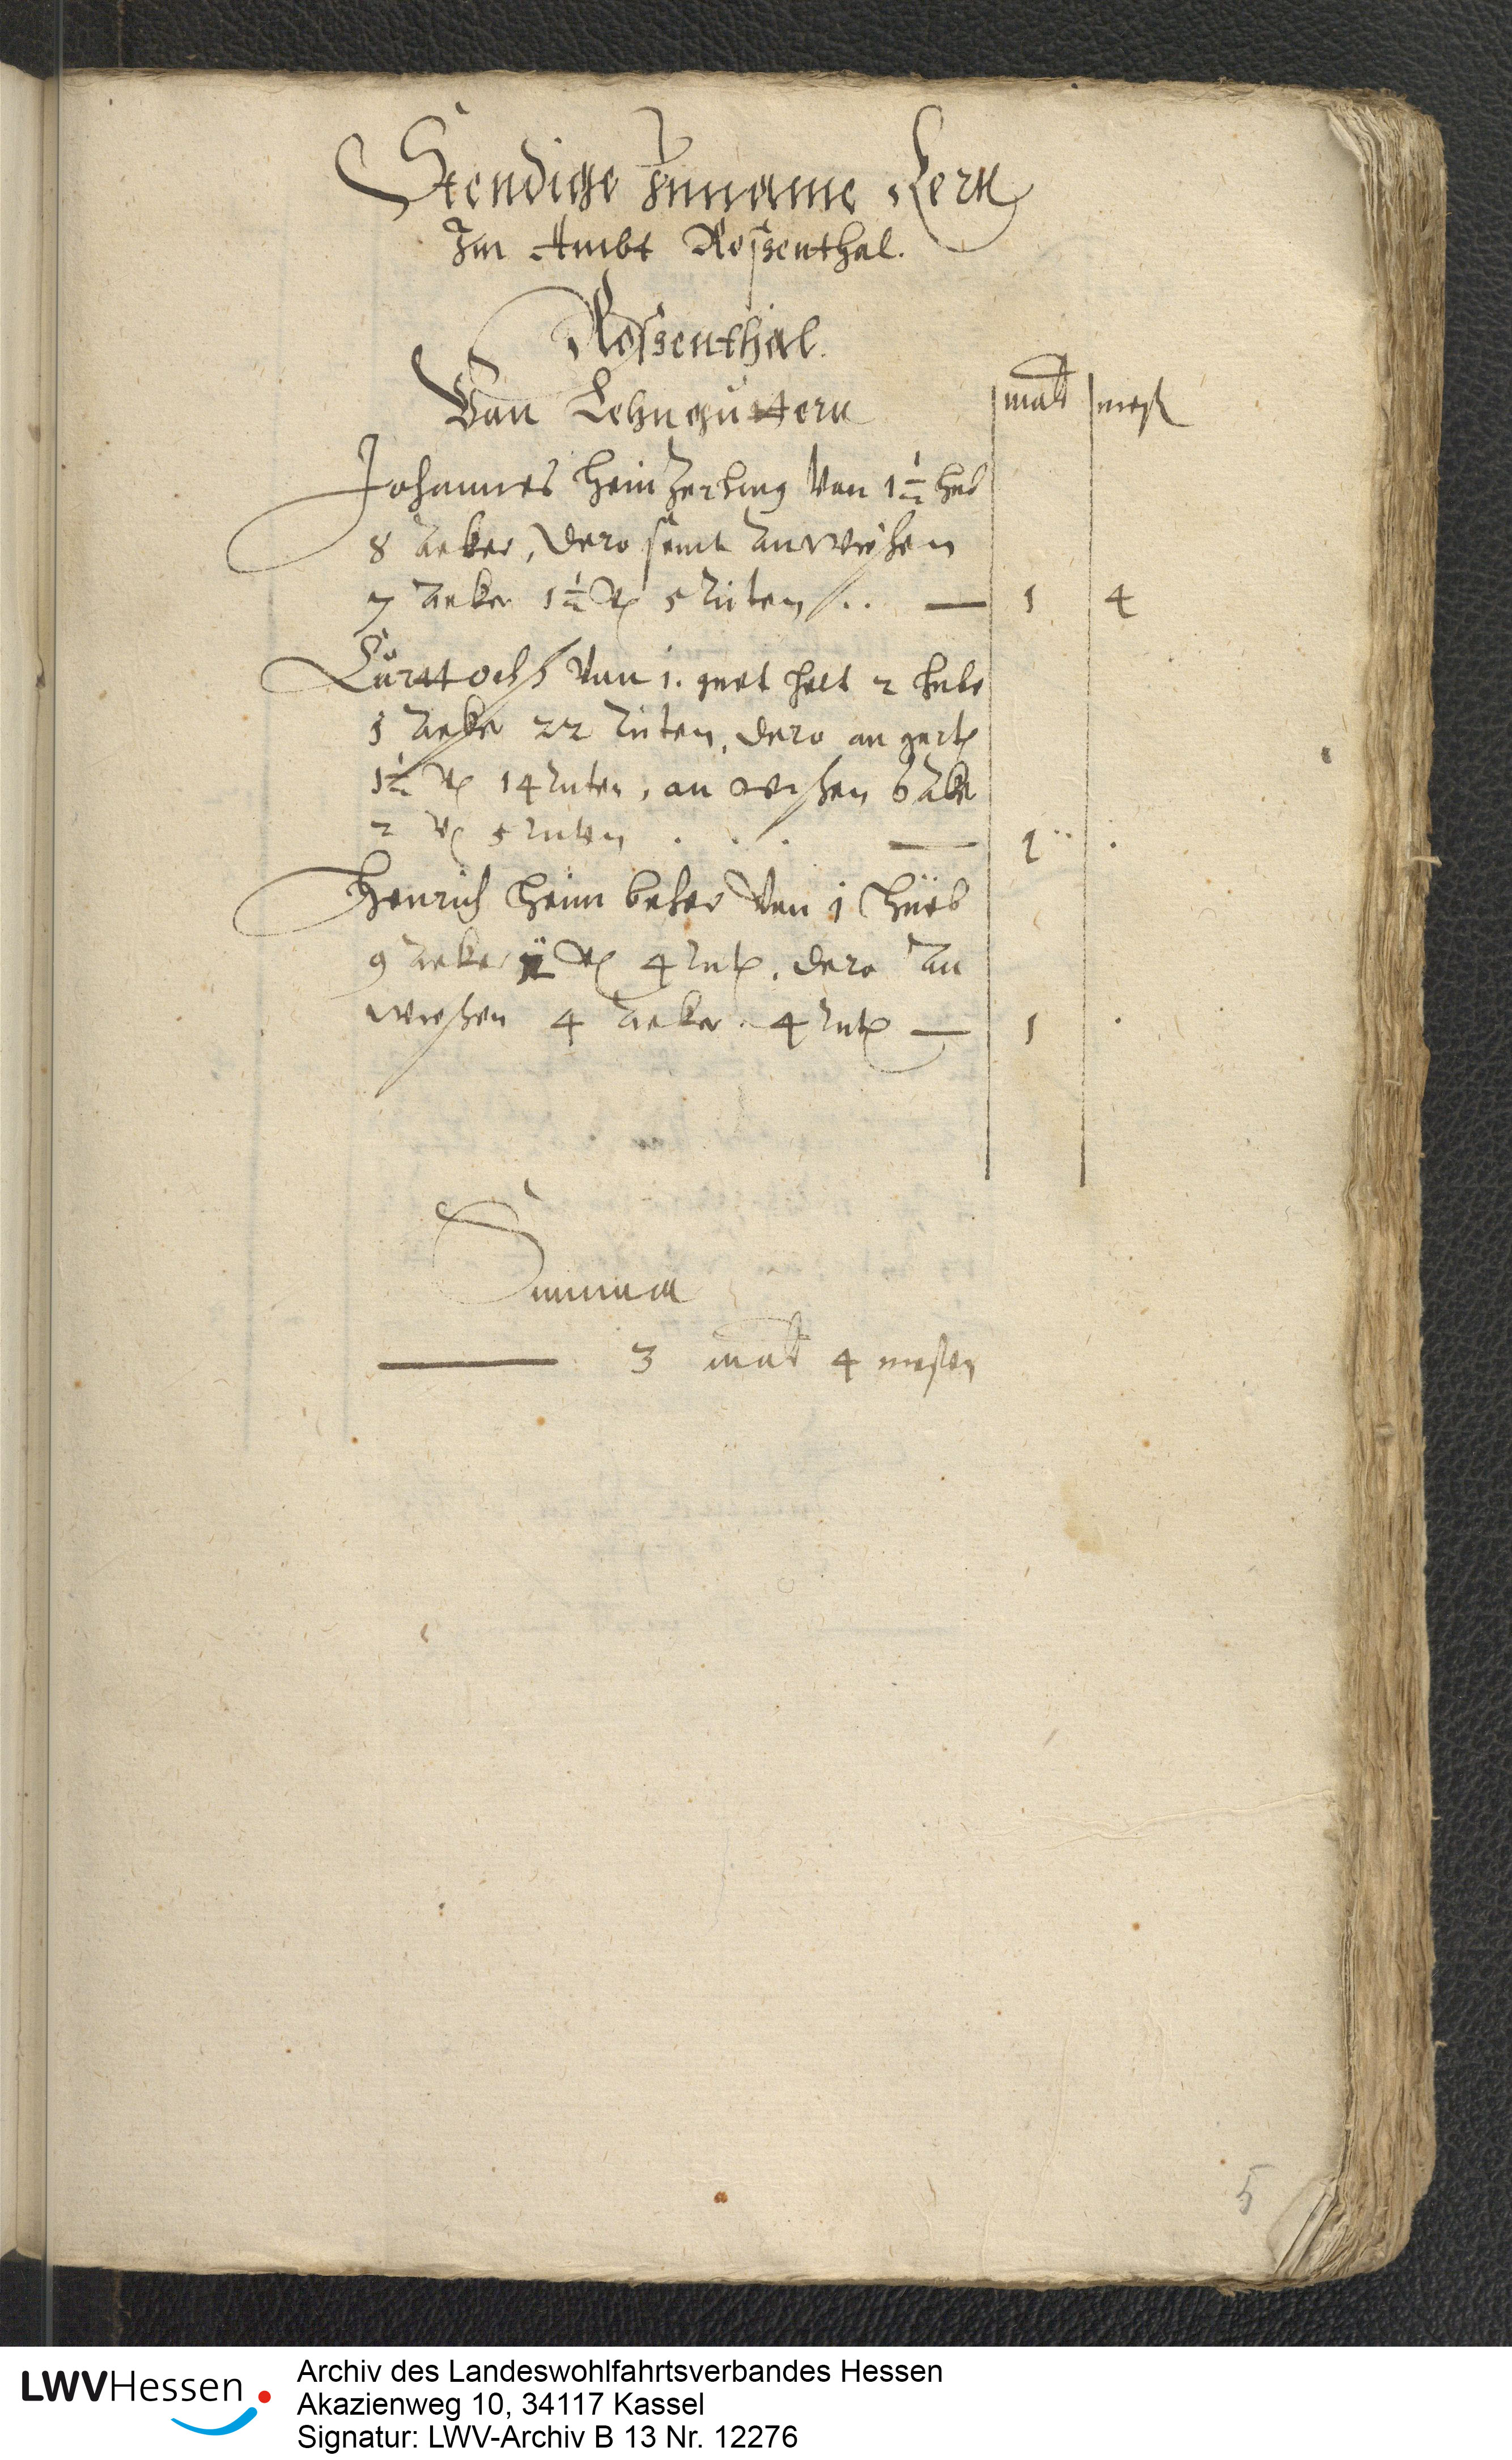 Stendige Inname Kern
Im Ambt Rosenthal.
Rosenthal.
Von Lehngüttern malt meß
Johannes Heinzerling von 1½ hub
8 acker, dero seint an wiesen
7 acker 1½ 5 ruten .. — 1 4
Curtt ochs von 1. guet helt 2 hube
5 acker 22 ruten, dero an gert
1½ 14 ruten, an wiesen 6 aker
2 5 ruten . . . — 1 .
Henrich Heim von 1 Hueb
9 acker 4 rut. dero an
wiesen 4 acker 4 rut — 1 .
Summa
— 3 malt 4 mesten
5
LWVHessen
Archiv des Landeswohlfahrtsverbandes Hessen
Akazienweg 10, 34117 Kassel
Signatur: LWV-Archiv B 13 Nr. 12276